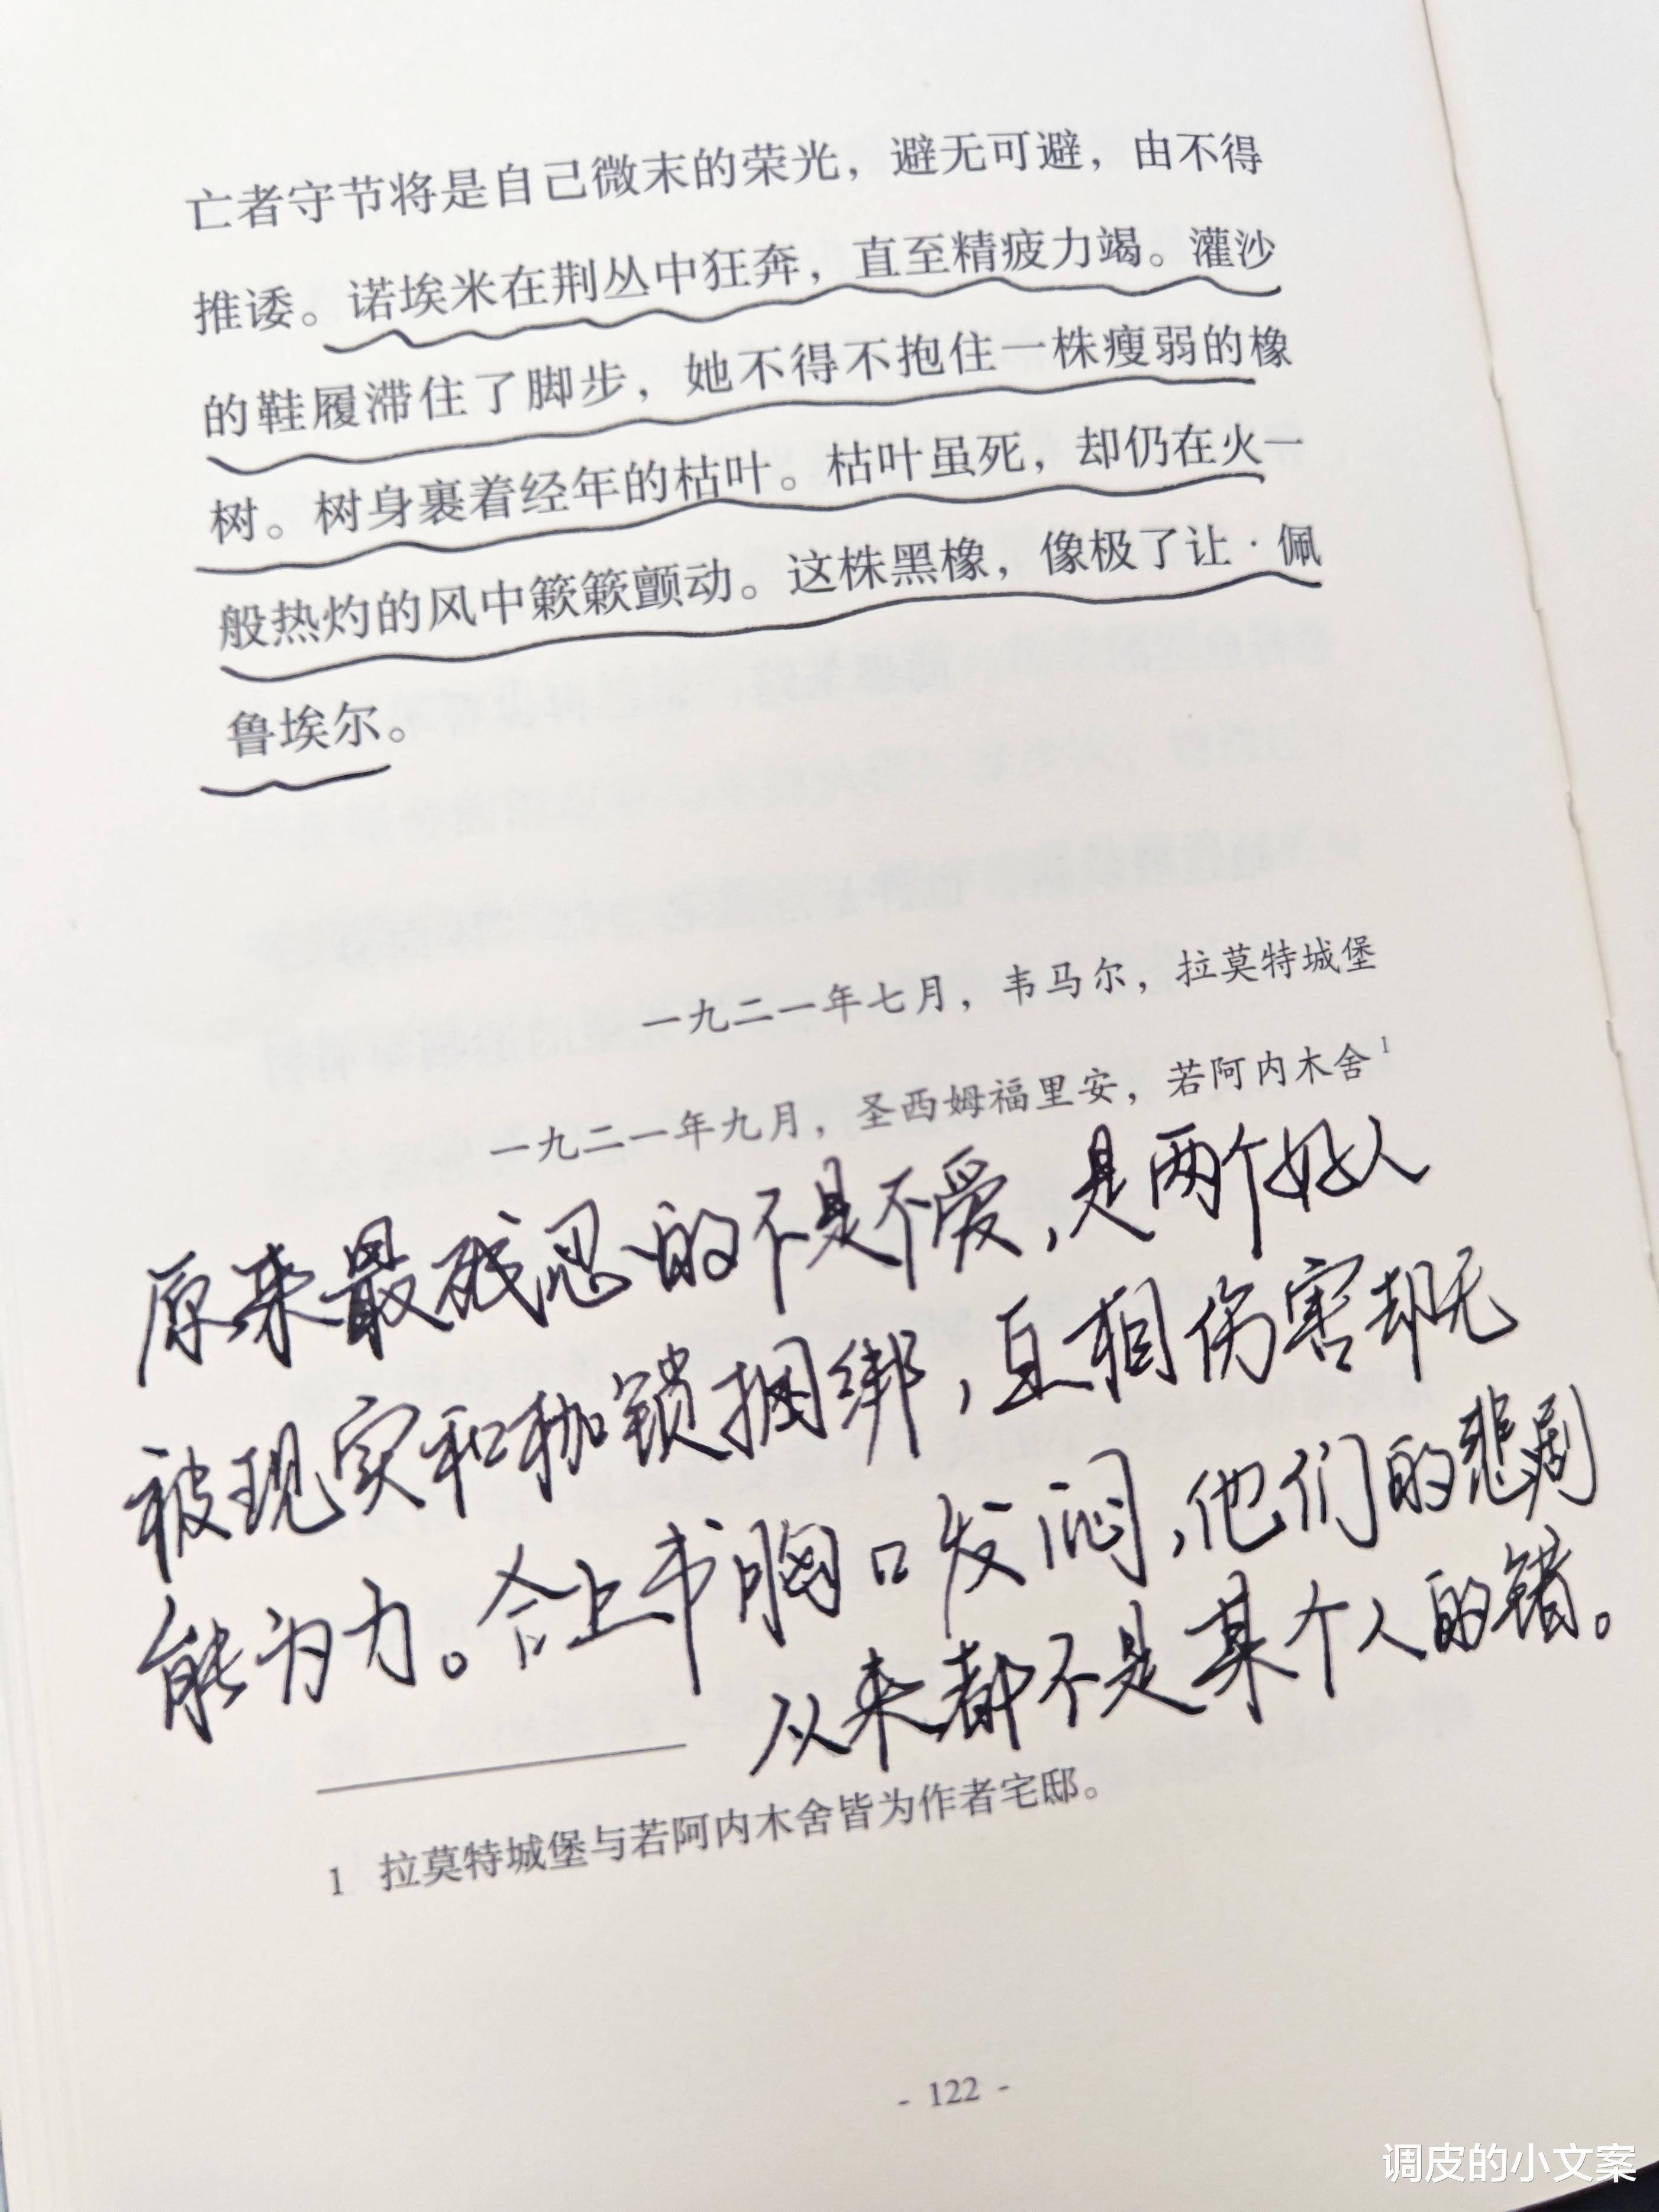 亡者守节将是自己微末的荣光，避无可避，由不得
推诿。诺埃米在荆丛中狂奔，直至精疲力竭。灌沙
的鞋履滞住了脚步，她不得不抱住一株瘦弱的橡
树。树身裹着经年的枯叶。枯叶虽死，却仍在火一
般热灼的风中簌簌颤动。这株黑橡，像极了让·佩
鲁埃尔。
一九二一年七月，韦马尔，拉莫特城堡
一九二一年九月，圣西姆福里安，若阿内木舍1
原来最残忍的不是不爱，是两个好人
被现实和枷锁捆绑，互相伤害却无
能为力。合上书胸口发闷，他们的悲剧
从来都不是某个人的错。
1 拉莫特城堡与若阿内木舍皆为作者宅邸。
- 122 -
调皮的小文案